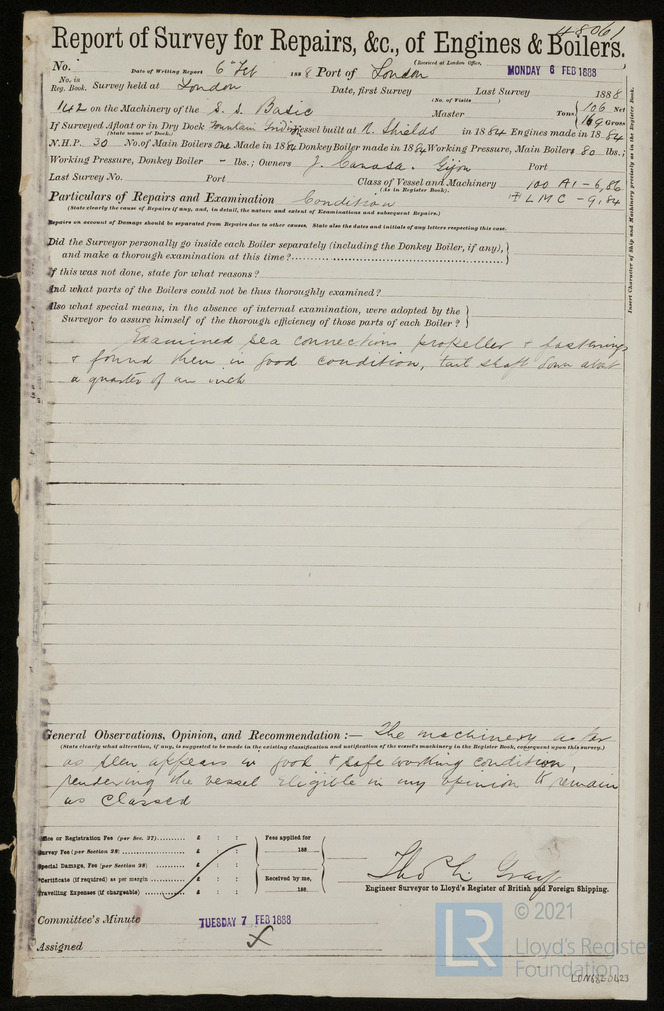 48061
Report of Survey for Repairs, &c., of Engines & Boilers.
(Received at London Office,
No. Date of Writing Report 6th Feb 1888 Port of London MONDAY 6 FEB 1888
No. in Reg. Book. Survey held at London Date, first Survey Last Survey 1888
(No. of Visits )
142 on the Machinery of the S. S. Basic Master Tons 106 Net
169 Gross
If Surveyed Afloat or in Dry Dock Fountain Vessel built at N. Shields in 1884 Engines made in 1884
(State name of Dock.)
N.H.P. 30 No. of Main Boilers One Made in 1884 Donkey Boiler made in 1884 Working Pressure, Main Boilers 80 lbs.;
Working Pressure, Donkey Boiler – lbs.; Owners J. Gijon Port
Last Survey No. Port Class of Vessel and Machinery 100 A1 – 6,86
(As in Register Book).
Particulars of Repairs and Examination Condition ✠ L M C – 9,84
(State clearly the cause of Repairs if any, and, in detail, the nature and extent of Examinations and subsequent Repairs.)
Repairs on account of Damage should be separated from Repairs due to other causes. State also the dates and initials of any letters respecting this case.
Did the Surveyor personally go inside each Boiler separately (including the Donkey Boiler, if any),
and make a thorough examination at this time?
If this was not done, state for what reasons?
And what parts of the Boilers could not be thus thoroughly examined?
Also what special means, in the absence of internal examination, were adopted by the
Surveyor to assure himself of the thorough efficiency of those parts of each Boiler?
Insert Character of Ship and Machinery precisely as in the Register Book.
Examined sea connections propeller & fastnings
& found them in good condition, tail shaft down about
a quarter of an inch
General Observations, Opinion, and Recommendation :— The machinery as far
(State clearly what alteration, if any, is suggested to be made in the existing classification and notification of the vessel's machinery in the Register Book, consequent upon this survey.)
as seen appears in good & safe working condition,
rendering the vessel eligible in my opinion to remain
as classed
Office or Registration Fee (per Sec. 27) £ : : Fees applied for
Survey Fee (per Section 28) £ : : 188
Special Damage, Fee (per Section 28) £ : :
Certificate (if required) as per margin £ : : Received by me,
Travelling Expenses (if chargeable) £ : : 188
Gray
Engineer Surveyor to Lloyd's Register of British and Foreign Shipping.
Committee's Minute TUESDAY 7 FEB 1888
Assigned
LR
© 2021
Lloyd's Register
Foundation